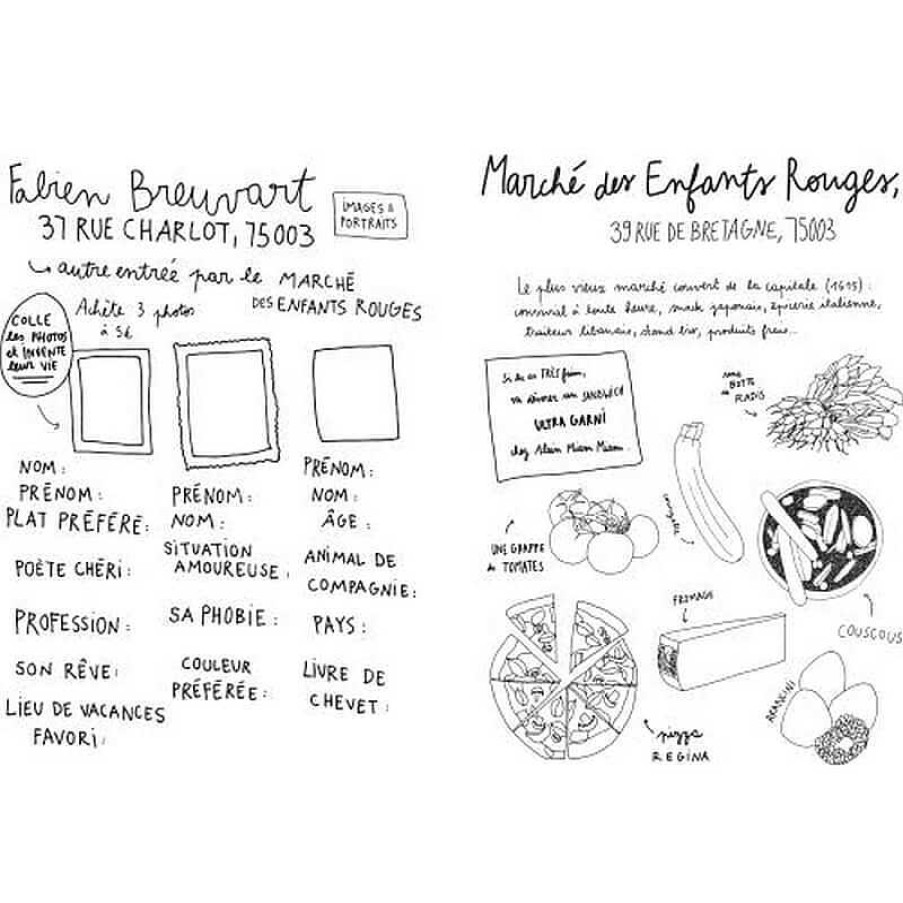 Fabien Breuvart
37 RUE CHARLOT, 75003
IMAGES &
PORTRAITS
autre entrée par le MARCHÉ
DES ENFANTS ROUGES
COLLE
les PHOTOS
et INVENTE
leur VIE
Achète 3 photos
à 5€
NOM :
PRÉNOM :
PLAT PRÉFÉRÉ :
POÈTE CHÉRI :
PROFESSION :
SON RÊVE :
LIEU DE VACANCES
FAVORI :
PRÉNOM :
NOM :
SITUATION
AMOUREUSE :
SA PHOBIE :
COULEUR
PRÉFÉRÉE :
PRÉNOM :
NOM :
ÂGE :
ANIMAL DE
COMPAGNIE :
PAYS :
LIVRE DE
CHEVET :
Marché des Enfants Rouges,
39 RUE DE BRETAGNE, 75003
Le plus vieux marché couvert de la capitale (1615) :
convivial à toute heure, snack japonais, épicerie italienne,
traiteur libanais, stand bio, produits frais...
Si tu as TRÈS faim,
va dîner un SANDWICH
ULTRA GARNI
chez Alain Miam Miam
une
BOTTE
de RADIS
courgette
UNE GRAPPE
de TOMATES
FROMAGE
COUSCOUS
pizza
REGINA
ARANCINI